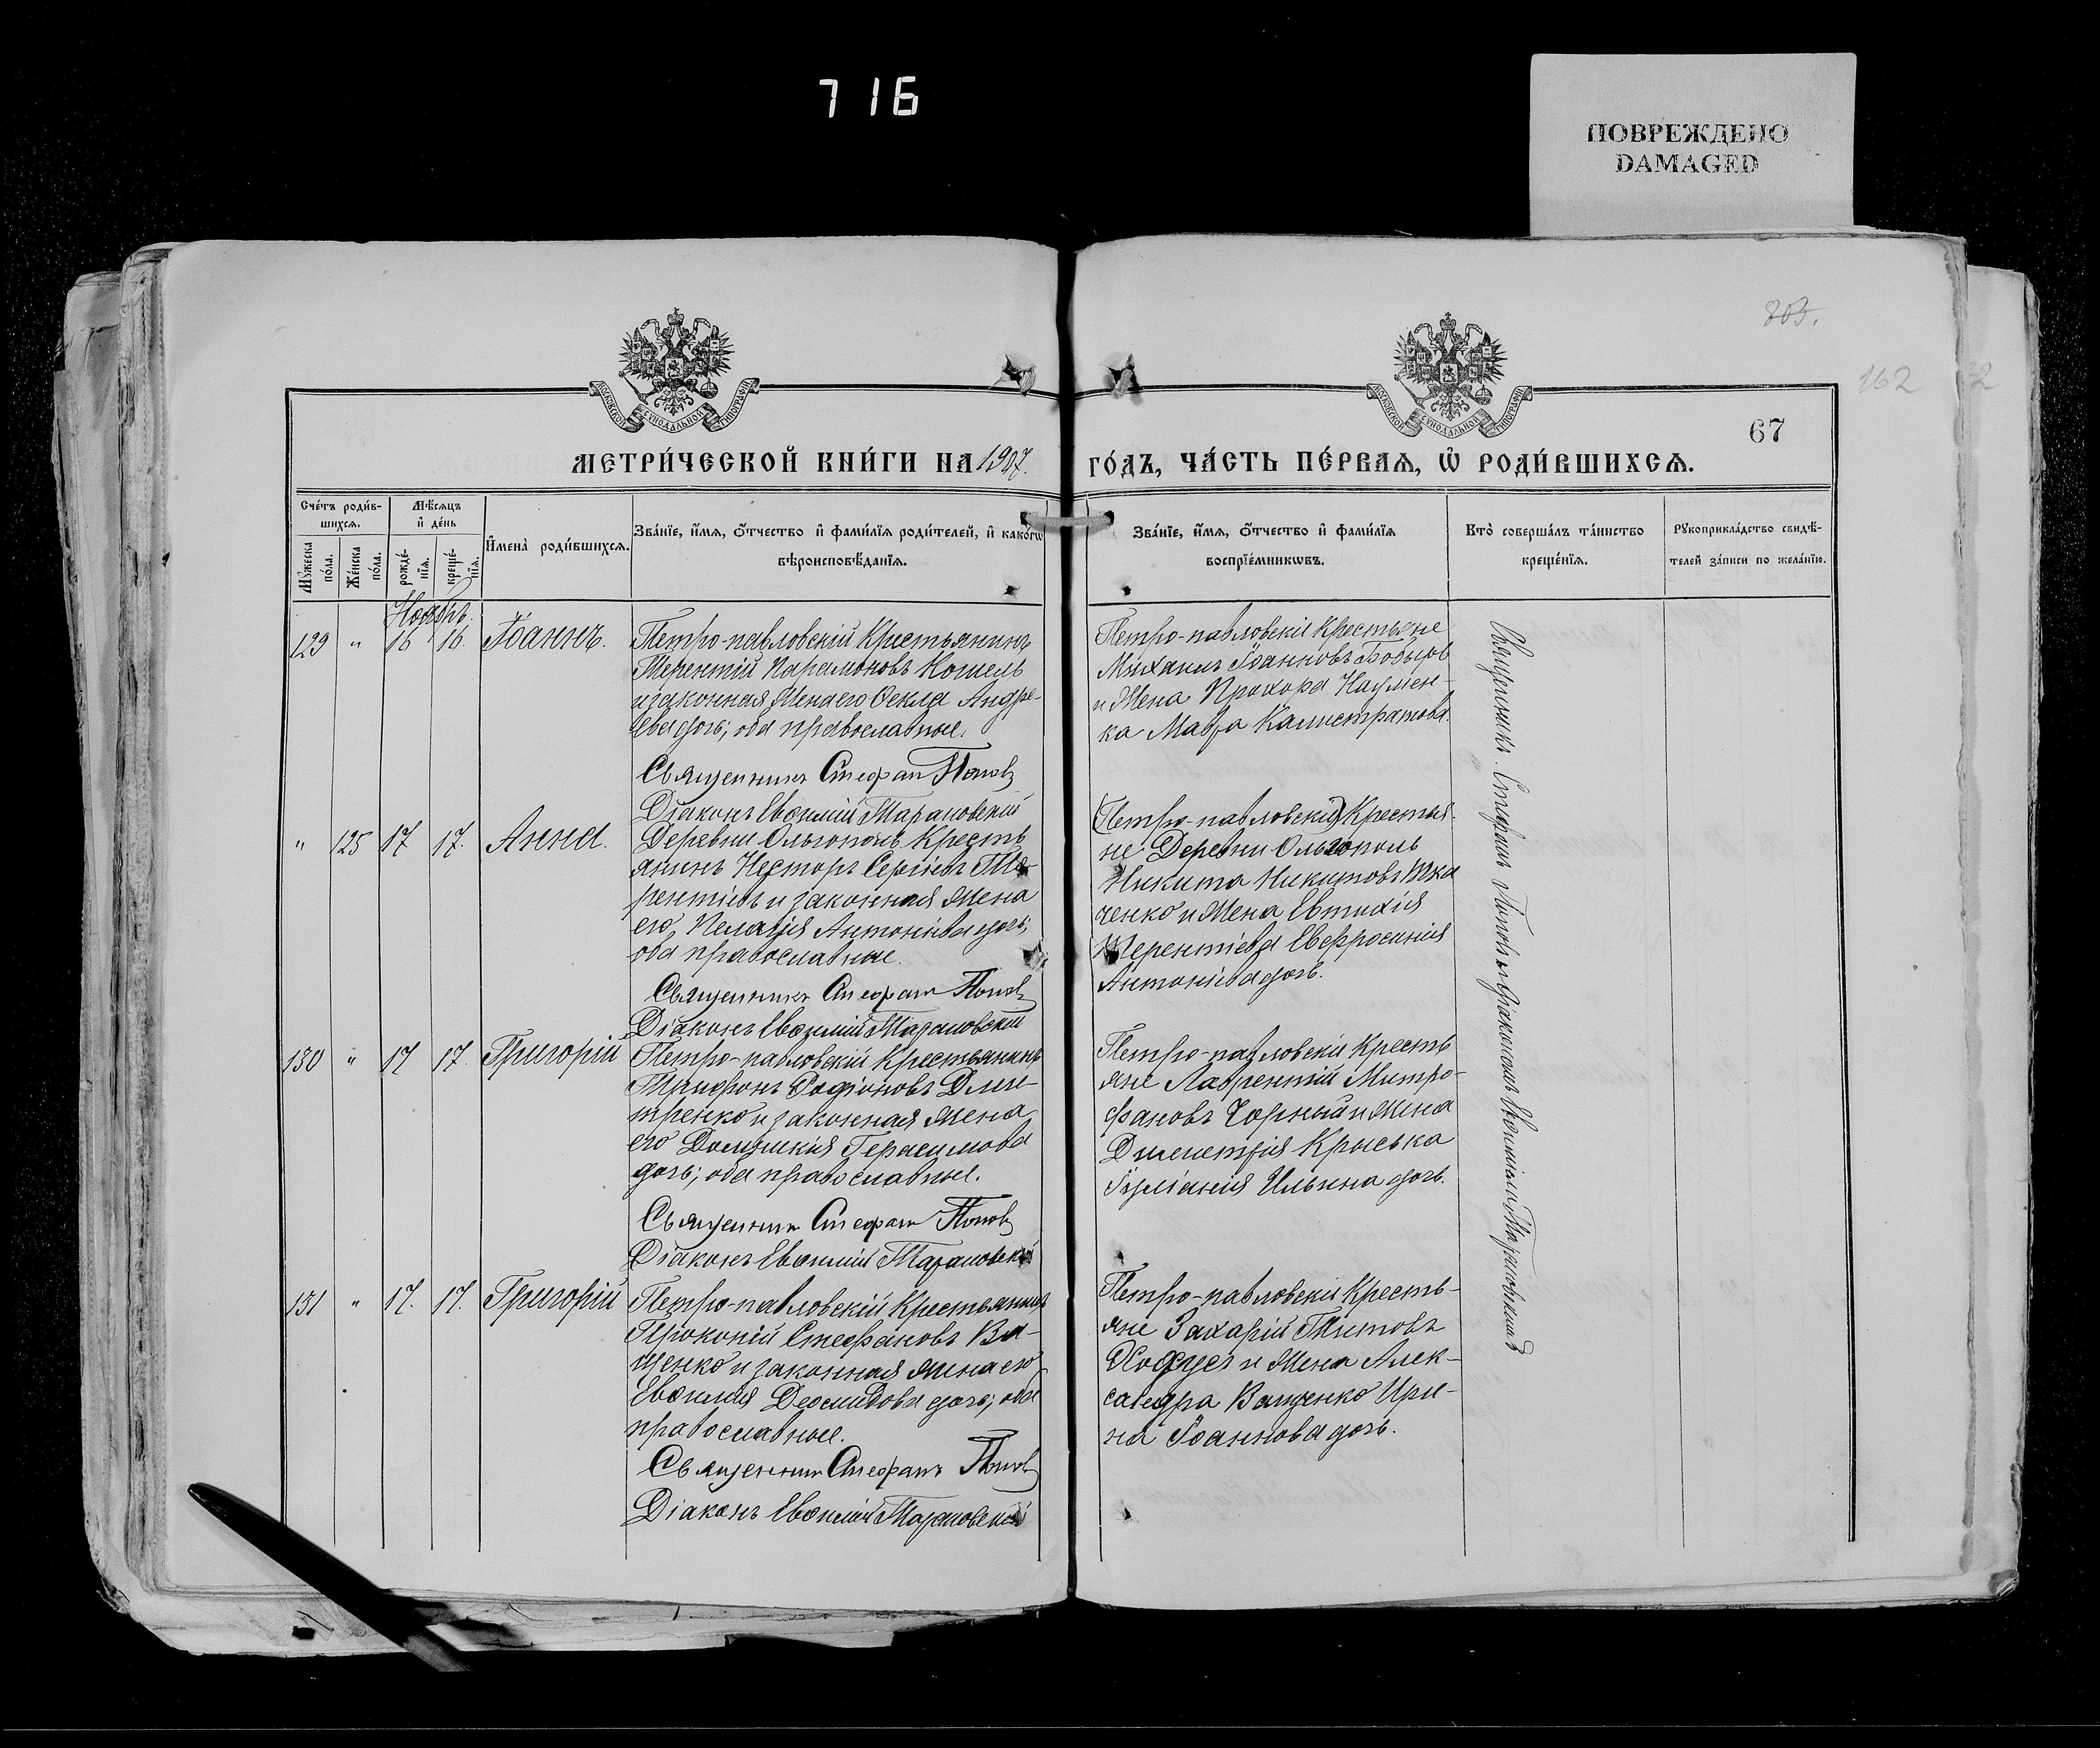 716
ПОВРЕЖДЕНО
DAMAGED
203.
162
67
МОСКОВСКОЙ СѴНОДАЛЬНОЙ ТИПОГРАФІИ
МОСКОВСКОЙ СѴНОДАЛЬНОЙ ТИПОГРАФІИ
МЕТРИ́ЧЕСКОЙ КНИ́ГИ НА 1907.
ГО́ДЪ, ЧА́СТЬ ПЕ́РВАѦ, Ѡ҆ РОДИ́ВШИХСѦ.
Сче́тъ роди́вшихсѧ.
Мꙋ́жеска по́ла.
Же́нска по́ла.
Мѣ́сѧцъ и҆ де́нь
рожде́нїѧ.
креще́нїѧ.
И҆мена̀ роди́вшихсѧ.
Зва́нїе, и҆́мѧ, ѻ҆́тчество и҆ фами́лїѧ роди́телей, и҆ како́гѡ
вѣроисповѣ́данїѧ.
Зва́нїе, и҆́мѧ, ѻ҆́тчество и҆ фами́лїѧ
воспрїе́мникѡвъ.
Кто̀ соверша́лъ та́инство
креще́нїѧ.
Рꙋкоприкла́дство свидѣ́-
телей за́писи по жела́нїю.
Ноябрь.
129 " 16 16. Іоаннъ.
Петро-павловскій Крестьянинъ
Терентій Парамоновъ Кошель
и законная жена его Ѳекла Андре-
ева дочь; оба православные.
Священникъ Стефан Попов
Діаконъ Евѳимій Тарановскій
Петро-павловскіе Крестьяне
Михаилъ Іоанновъ Бодыров
и Жена Прохора Наумен-
ка Мавра Калистратова.
" 125 17 17. Анна.
Деревни Ольгополь Кресть
янинъ Несторъ Сергіевъ Те-
рентіевъ и законная Жена
его Пелагія Антоніева дочь;
оба православные.
Священникъ Стефан Попов
Діаконъ Евѳимій Тарановскій
(Петро-павловскіе) Крестья-
не Деревни Ольгополь
Никита Никитовъ Тка
ченко и Жена Евтихія
Терентіева Евфросинія
Антоніева дочь.
130 " 17 17. Григорій
Петро-павловскій Крестьянинъ
Трифонъ Родіоновъ Дми-
тренко и законная Жена
его Домникія Герасимова
дочь; оба православные.
Священник Стефан Попов
Діаконъ Евѳимій Тарановскій
Петро-павловскіе Кресть
яне Лаврентій Митро-
фановъ Чорный и Жена
Дисистрія Крыська
Іуліанія Ильина дочь.
131 " 17. 17. Григорій
Петро-павловскій Крестьянинъ
Прокопій Стефановъ Ва-
щенко и законная Жена его
Евѳимія Деомидова дочь; оба
православные.
Священник Стефанъ Попов
Діаконъ Евѳимій Тарановскій
Петро-павловскіе Кресть-
яне Захарій Титовъ
и Жена Алек-
сандра Ващенко Ири-
на Іоаннова дочь.
Священникъ Стефанъ Поповъ съ діакономъ Евѳиміемъ Тарановскимъ